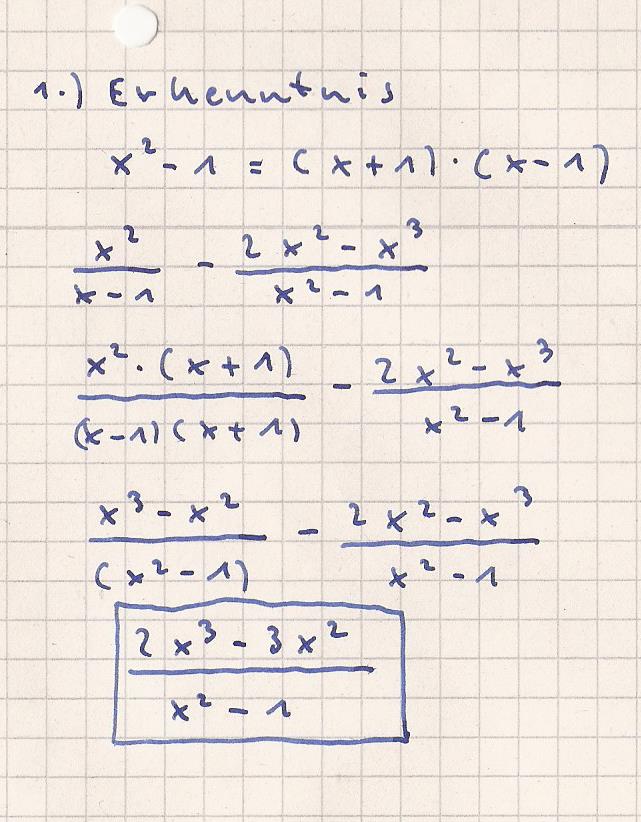 1.) Erkenntnis
x² - 1 = (x + 1) · (x - 1)
x² / (x - 1) - (2x² - x³) / (x² - 1)
(x² · (x + 1)) / ((x - 1)(x + 1)) - (2x² - x³) / (x² - 1)
(x³ - x²) / (x² - 1) - (2x² - x³) / (x² - 1)
(2x³ - 3x²) / (x² - 1)